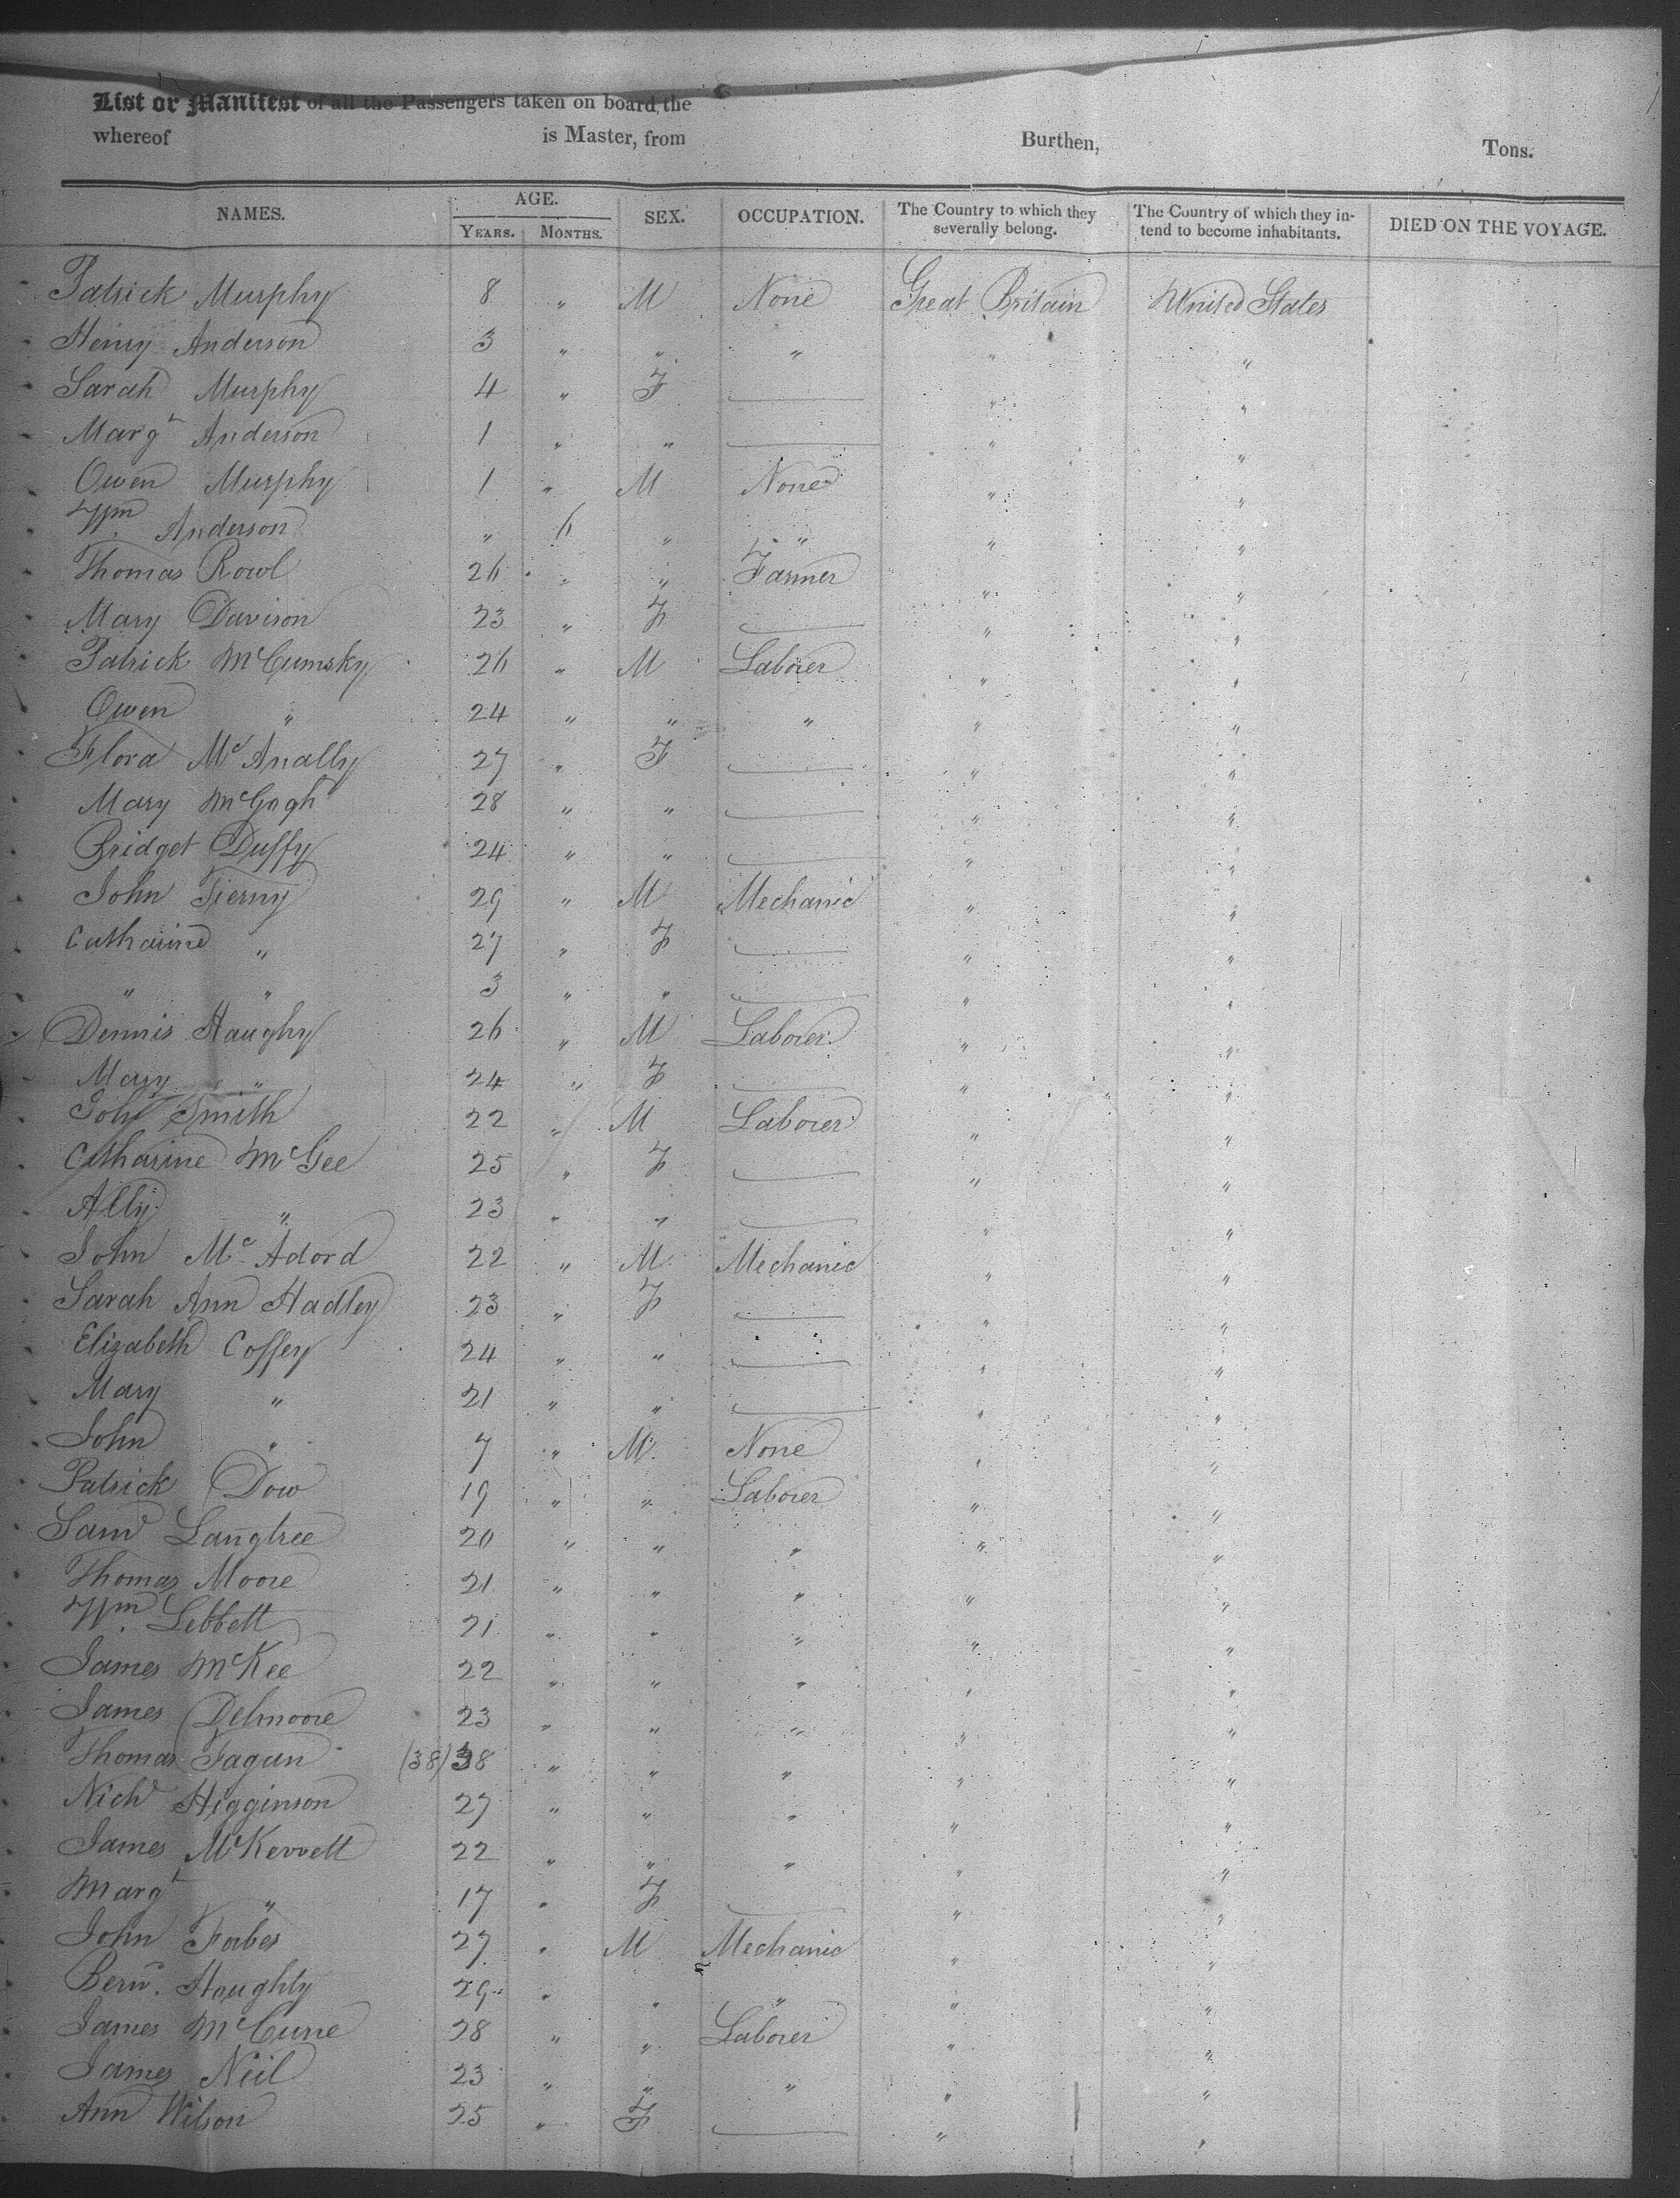 List or Manifest of all the Passengers taken on board, the
whereof is Master, from Burthen, Tons.
NAMES. AGE. YEARS. MONTHS. SEX. OCCUPATION. The Country to which they severally belong. The Country of which they intend to become inhabitants. DIED ON THE VOYAGE.
Patrick Murphy 8 " M None Great Britain United States
Henry Anderson 3 " " " " "
Sarah Murphy 4 " F — " "
Margt Anderson 1 " " — " "
Owen Murphy 1 " M None " "
Wm. Anderson " 6 " " " "
Thomas Rowl 26 " " Farmer " "
Mary Davison 23 " F — " "
Patrick McCumsky 26 " M Laborer " "
Owen " 24 " " " " "
Flora McAnally 27 " F — " "
Mary McGogh 28 " " — " "
Bridget Duffy 24 " " — " "
John Tierny 29 " M Mechanic " "
Catharine " 27 " F — " "
" " 3 " " — " "
Dennis Haughy 26 " M Laborer " "
Mary " 24 " F — " "
John Smith 22 " M Laborer " "
Catharine McGee 25 " F — " "
Ally " 23 " " — " "
John McAdord 22 " M Mechanic " "
Sarah Ann Hadley 23 " F — " "
Elizabeth Coffey 24 " " — " "
Mary " 21 " " — " "
John " 7 " M None " "
Patrick Dow 19 " " Laborer " "
Saml Langtree 20 " " " " "
Thomas Moore 21 " " " " "
Wm. Lebbett 21 " " " " "
James McKee 22 " " " " "
James Delmoore 23 " " " " "
Thomas Fagan (38) 38 " " " " "
Nichs Higginson 27 " " " " "
James McKervett 22 " " " " "
Margt " 17 " F — " "
John Forbes 27 " M Mechanic " "
Bernd. Haughty 29 " " " " "
James McCune 28 " " Laborer " "
James Neil 23 " " " " "
Ann Wilson 25 " F — " "